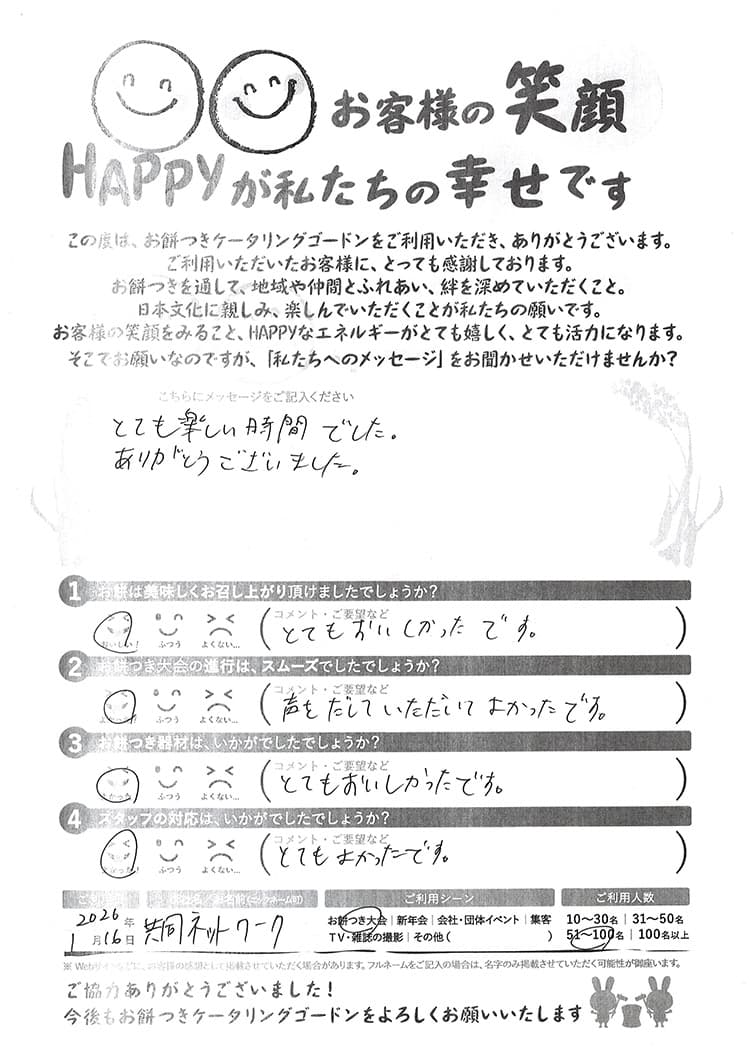 お客様の笑顔
HAPPYが私たちの幸せです
この度は、お餅つきケータリングゴードンをご利用いただき、ありがとうございます。
ご利用いただいたお客様に、とっても感謝しております。
お餅つきを通して、地域や仲間とふれあい、絆を深めていただくこと。
日本文化に親しみ、楽しんでいただくことが私たちの願いです。
お客様の笑顔をみること、HAPPYなエネルギーがとても嬉しく、とても活力になります。
そこでお願いなのですが、「私たちへのメッセージ」をお聞かせいただけませんか？
こちらにメッセージをご記入ください
とても楽しい時間でした。
ありがとうございました。
1 お餅は美味しくお召し上がり頂けましたでしょうか？
コメント・ご要望など
おいしい！ ふつう よくない… (とてもおいしかったです。)
2 お餅つき大会の進行は、スムーズでしたでしょうか？
コメント・ご要望など
ふつう よくない… (声をだしていただいてよかったです。)
3 お餅つき器材は、いかがでしたでしょうか？
コメント・ご要望など
ふつう よくない… (とてもおいしかったです。)
4 スタッフの対応は、いかがでしたでしょうか？
コメント・ご要望など
ふつう よくない… (とてもよかったです。)
ご利用シーン ご利用人数
2026年 お餅つき大会｜新年会｜会社・団体イベント｜集客 10〜30名｜31〜50名
1月16日 共同ネットワーク TV・雑誌の撮影｜その他( ) 51〜100名｜100名以上
※Webサイトなどに、お客様の感想として掲載させていただく場合があります。フルネームをご記入の場合は、名字のみ掲載させていただく可能性が御座います。
ご協力ありがとうございました！
今後もお餅つきケータリングゴードンをよろしくお願いいたします